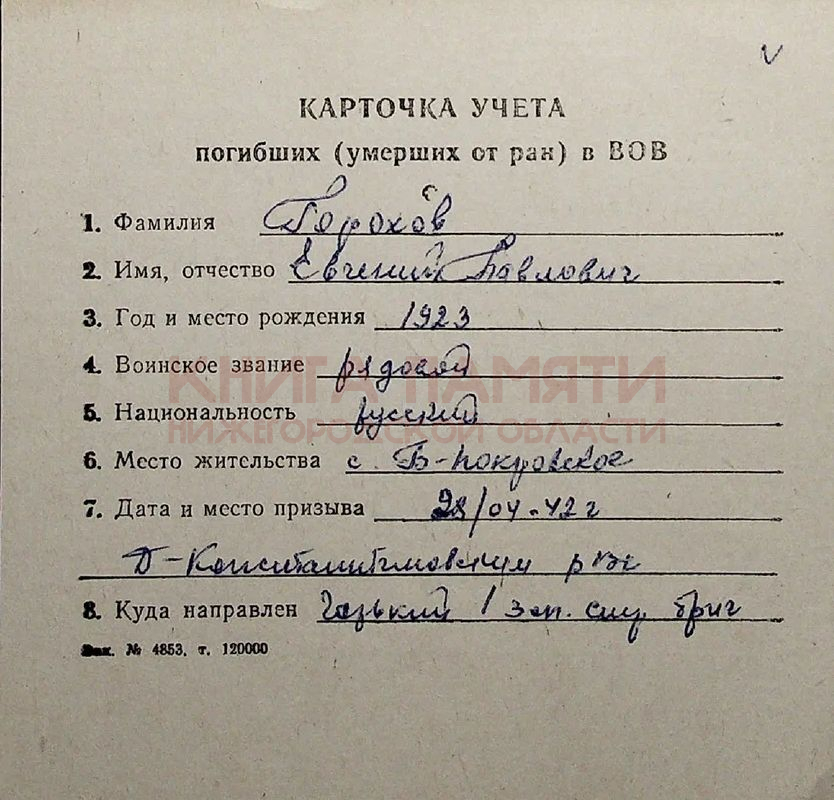 КАРТОЧКА УЧЕТА
погибших (умерших от ран) в ВОВ
1. Фамилия Горохов
2. Имя, отчество Евгений Павлович
3. Год и место рождения 1923
4. Воинское звание рядовой
КНИГА ПАМЯТИ
5. Национальность русский
НИЖЕГОРОДСКОЙ ОБЛАСТИ
6. Место жительства с. Б-Покровское
7. Дата и место призыва 28/04-42 г
Д-Константиновским рвк
8. Куда направлен 1 зап. бриг
Зак. № 4853, т. 120000